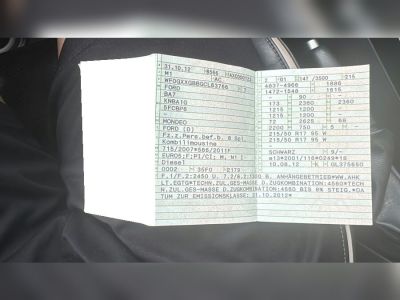 31.10.12 8566 AXC000123
M1 AC
FORD
BA7
KNBA1G
5FCBP8
-
MONDEO
FORD (D)
Fz.z.Pers.bef.b. 8 Spl.
Kombilimousine
715/2007*566/2011F
EURO5;F;PI/CI; M, N1 I
Diesel
0002 35F0 2179
2 01 147 /3500 215
4837-4966 1886
1472-1548 1615
- 90 - -
173 2360 2360
1215 1200 -
1215 1200 -
72 2625 66
2200 750 5 -
215/50 R17 95 W
215/50 R17 95 W
-
SCHWARZ 9/-
e13*2001/116*0249*18
10.08.12 K GL375650
F.1/F.2:2450 U. 7.2/8.2:1300 B. ANHÄNGEBETRIEB*WW.AHK
LT.EGTG*TECHN.ZUL.GES-MASSE D.ZUGKOMBINATION:4560*TECH
N.ZUL.GES-MASSE D.ZUGKOMBINATION:4560 BIS 8% STEIG.*DA
TUM ZUR EMISSIONSKLASSE: 31.10.2012*